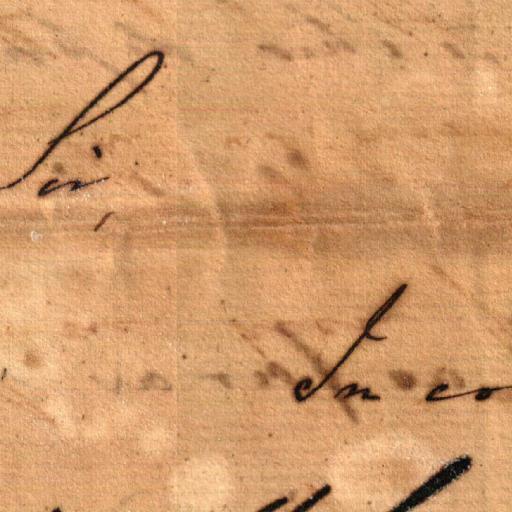 Sir,
In co